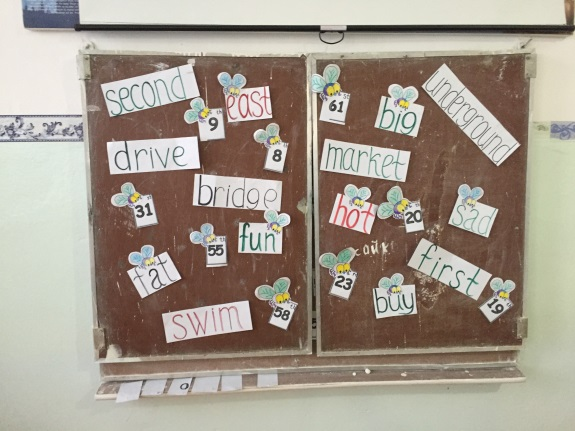 second
east
9
8
drive
bridge
31
55
fun
fat
58
swim
61
big
underground
market
hot
20
sad
first
23
buy
19